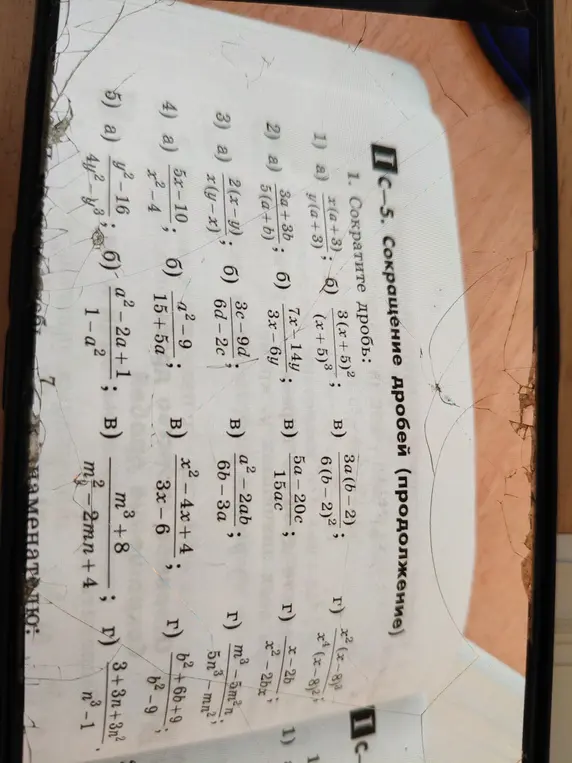 П С–5. Сокращение дробей (продолжение)
1. Сократите дробь:
1) а) x(a+3)/y(a+3); б) 3(x+5)²/(x+5)³; в) 3a(b−2)/6(b−2)²; г) x²(x−8)³/x⁴(x−8)²;
2) а) 3a+3b/5(a+b); б) 7x−14y/3x−6y; в) 5a−20c/15ac; г) x−2b/x²−2bx;
3) а) 2(x−y)/x(y−x); б) 3c−9d/6d−2c; в) a²−2ab/6b−3a; г) m³−5m²n/5n³−mn²;
4) а) 5x−10/x²−4; б) a²−9/15+5a; в) x²−4x+4/3x−6; г) b²+6b+9/b²−9;
5) а) y²−16/4y²−y³; б) a²−2a+1/1−a²; в) m³+8/m²−2mn+4; г) 3+3n+3n²/n³−1.
7
знаменателю:
П С–
1)